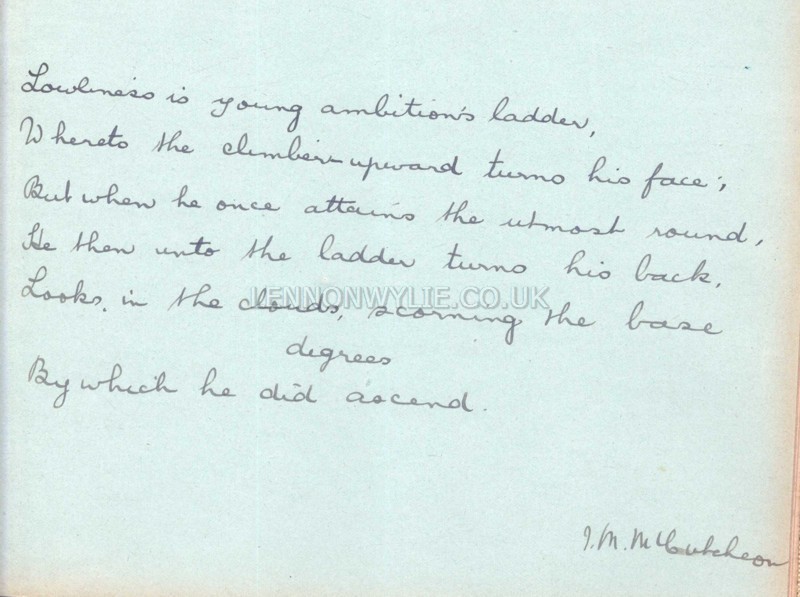 Lowliness is young ambition's ladder,
Whereto the climber-upward turns his face;
But when he once attains the utmost round,
He then unto the ladder turns his back,
Looks in the clouds, scorning the base
degrees
By which he did ascend.
LENNONWYLIE.CO.UK
I. M. McCutcheon